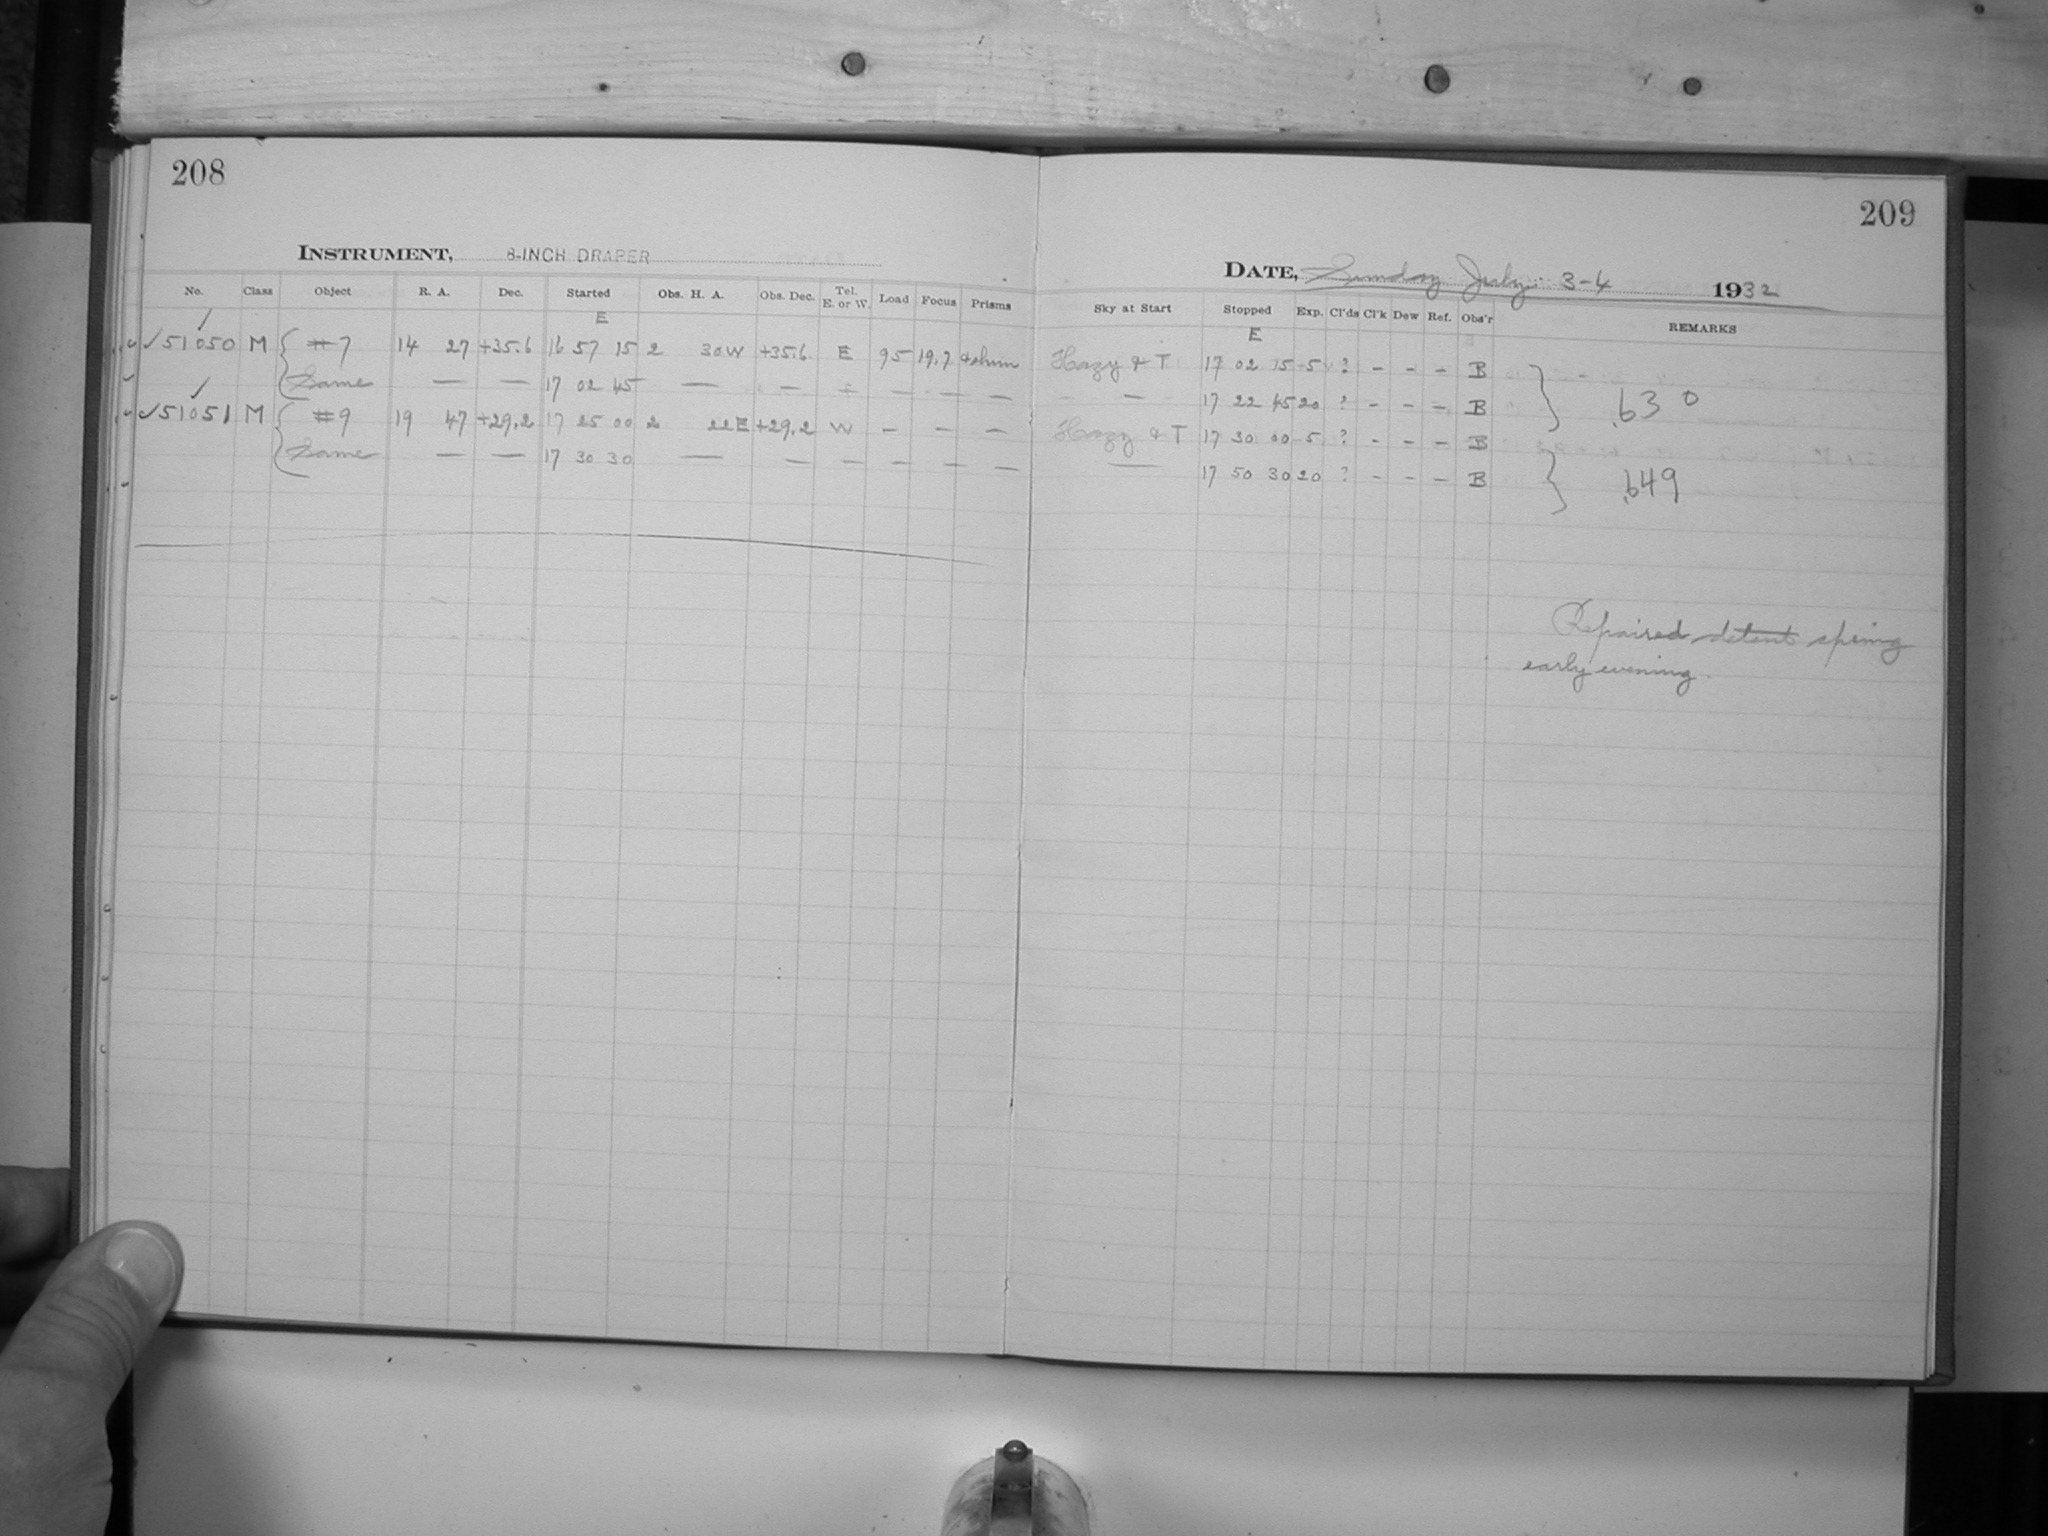 208
INSTRUMENT, 8-INCH DRAPER
No. Class Object R. A. Dec. Started Obs. H. A. Obs. Dec. Tel. E. or W. Load Focus Prisms
E
✓51050 M { #7 14 27 +35.6 16 57 15 2 30W +35.6 E 95 19.7
Same — — 17 02 45 — — — — — —
✓51051 M { #9 19 47 +29.2 17 25 00 2 22E +29.2 W — — —
Same — — 17 30 30 — — — — — —
209
DATE, Sunday July 3-4 1932
Sky at Start Stopped Exp. Cl'ds Cl'k Dew Ref. Obs'r REMARKS
E
Hazy & T 17 02 15 5 ? - - - B
— 17 22 45 20 ? - - - B } .630
Hazy & T 17 30 00 5 ? - - - B
— 17 50 30 20 ? - - - B } .649
Repaired detent spring
early evening.